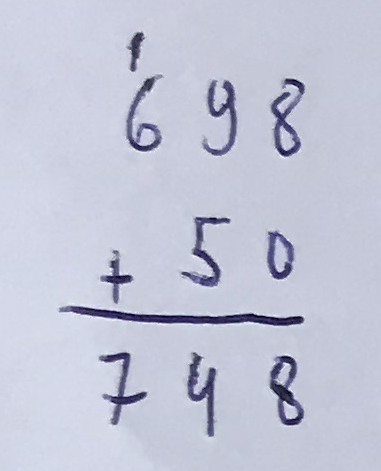 1
698
+ 50
748